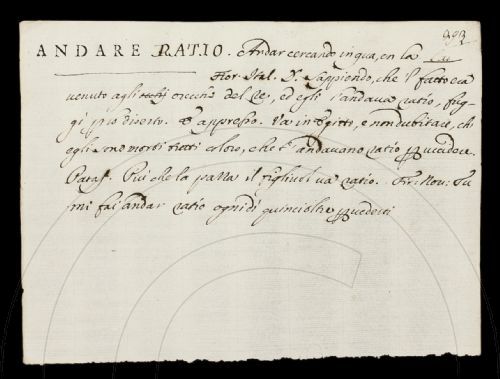 303
ANDARE RATIO. Andar cercando in qua, en la
Fior. Ital. D. Sappiendo, che 'l fatto era
venuto agli orecchi del Re, ed egli l'andava ratio, fug
gi pio diserto. E appresso. Va in Egitto, e non dubitare, ch
egli sono morti tutti coloro, che t'andavano ratio p uccidere.
Più che la palla il figliuol va ratio. Fir. Nov. Tu
mi fai andar ratio ogni dì quinci oltre p vederti